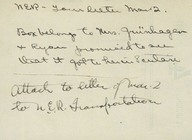 N.E.R. - Your letter Mar. 2.
Box belong to Mrs.
& Ryan promised to see
that it got to
Attach to letter of Mar-2
to N.E.R. Transportation